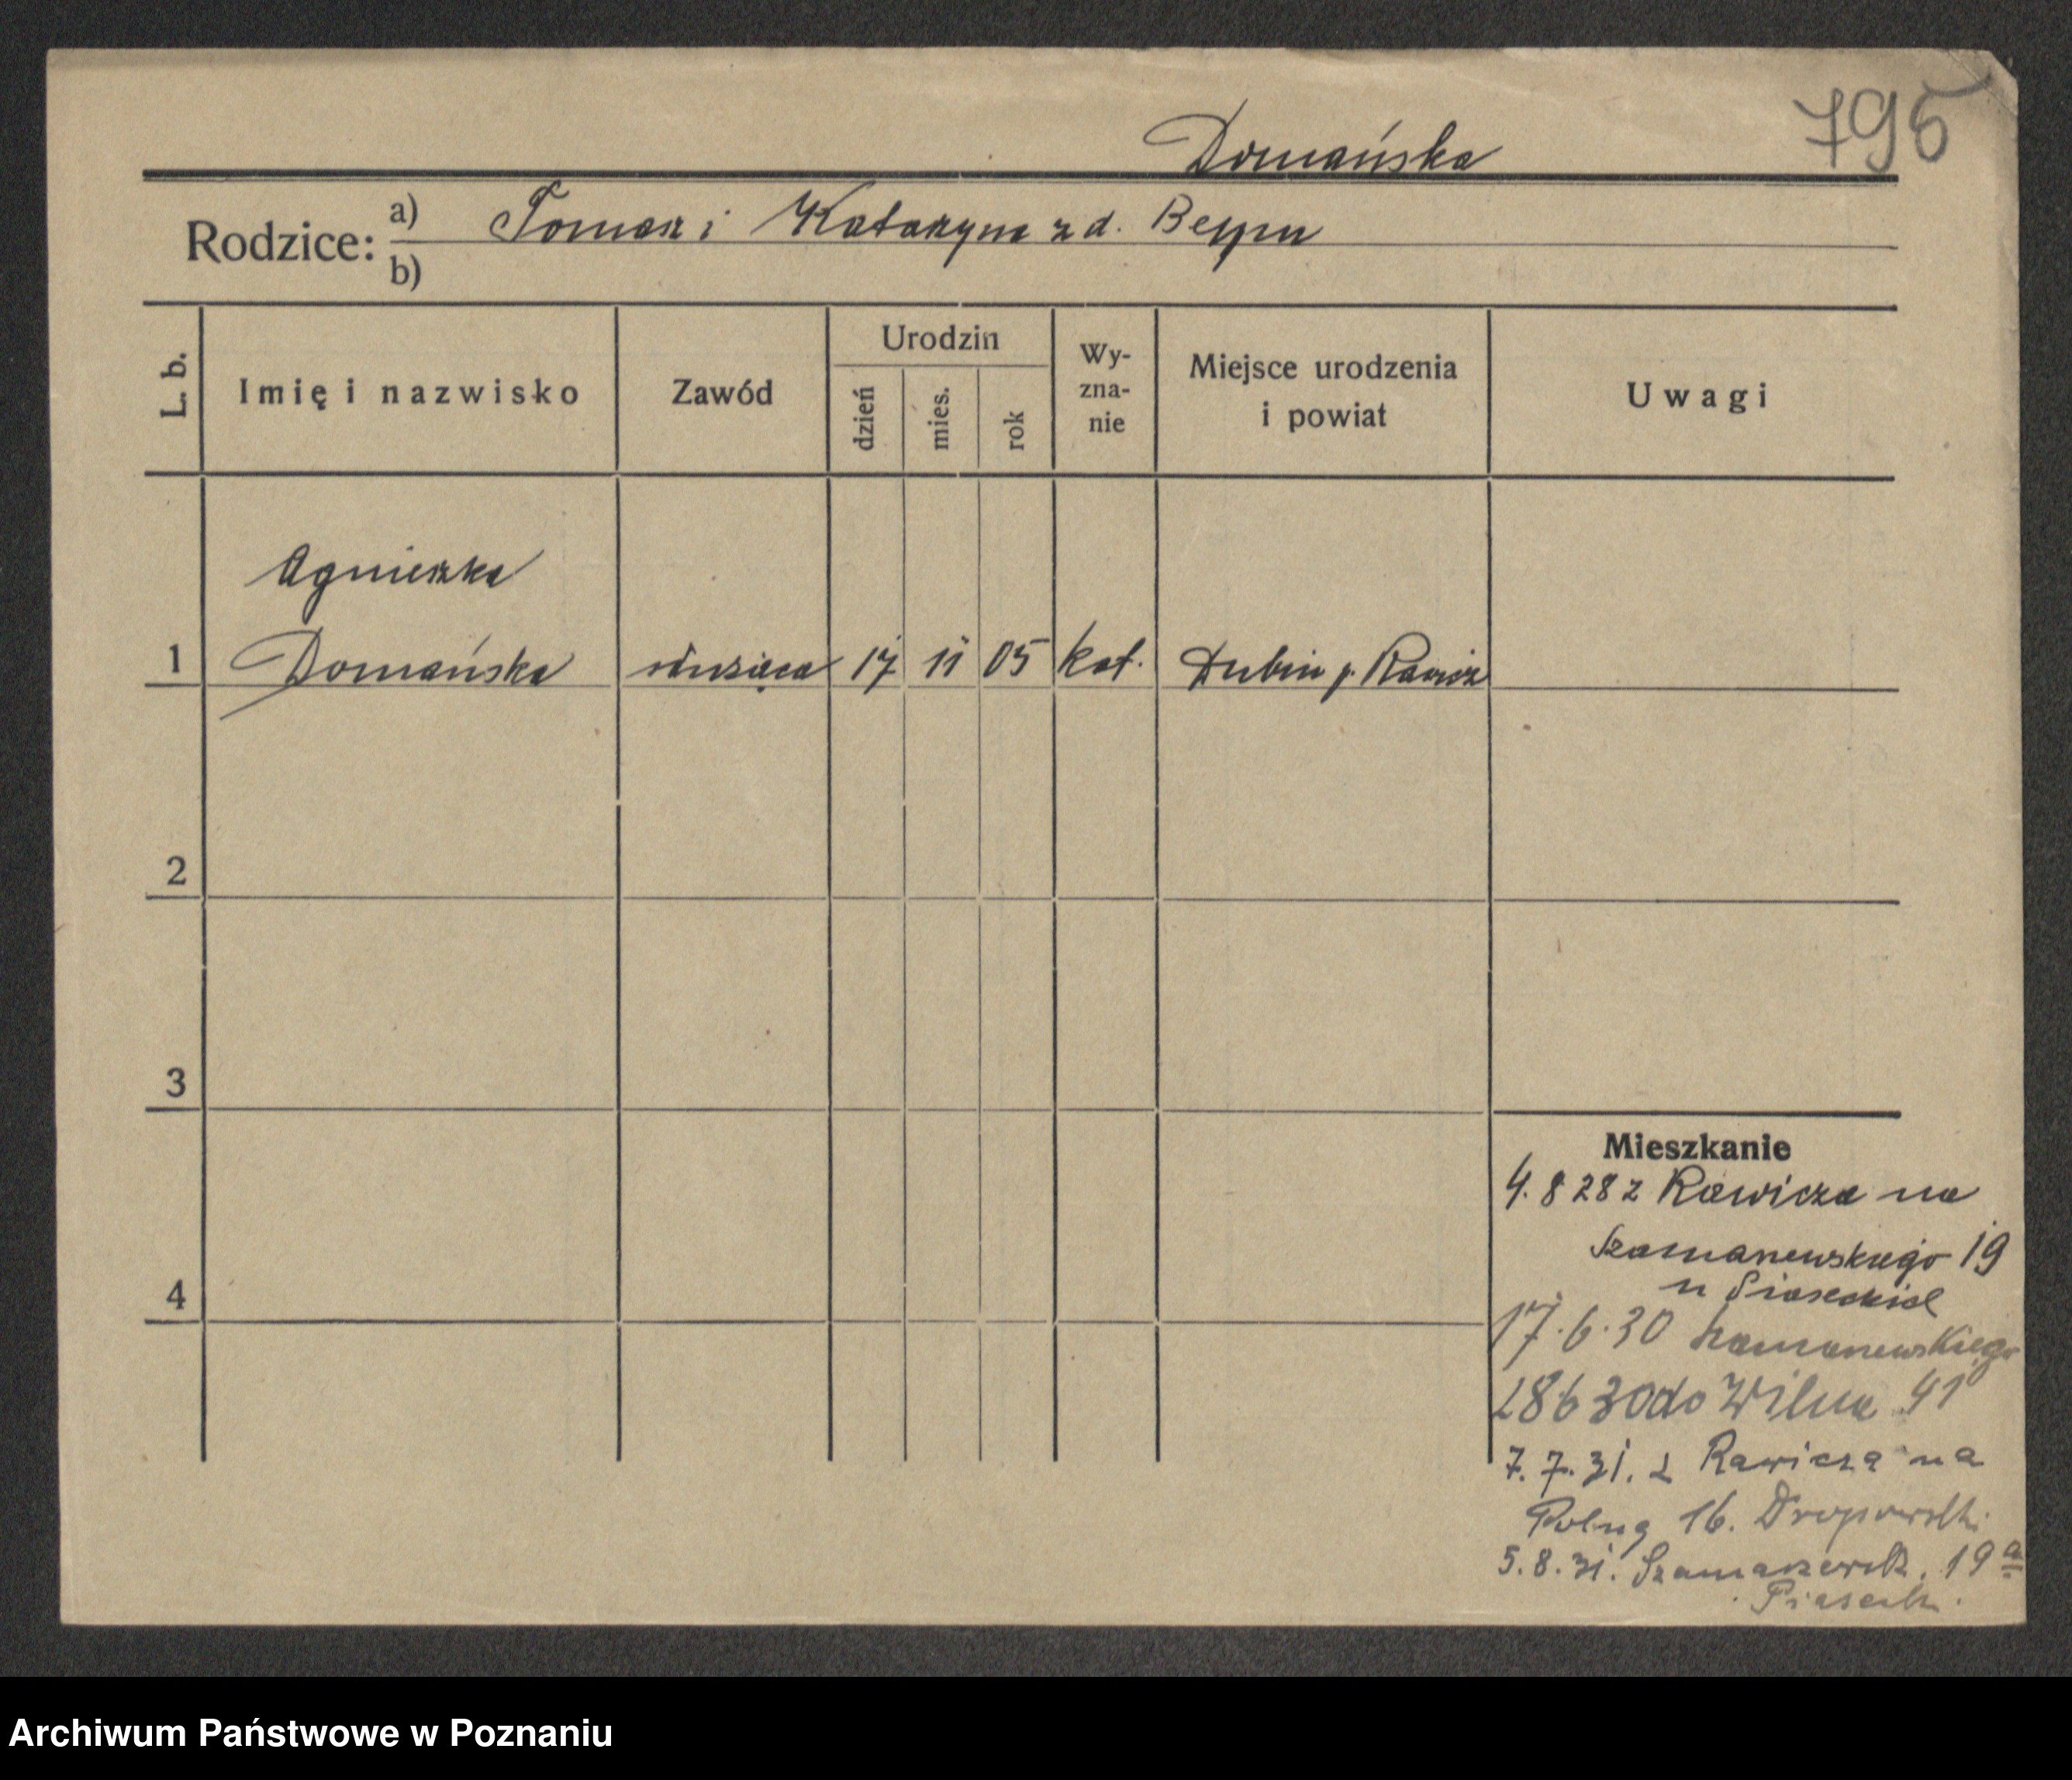 795
Domańska
Rodzice: a) Tomasz i Katarzyna z d.
b)
L. b.
Imię i nazwisko
Zawód
Urodzin
dzień
mies.
rok
Wy-
zna-
nie
Miejsce urodzenia
i powiat
Uwagi
Agnieszka
1 Domańska służąca 17 11 05 kat. Dubin p. Rawicz
2
3
4
Mieszkanie
4. 8 28 z Rawicza na
Szamarzewskiego 19
u Piaseckiel
17.6.30 Szamarzewskiego
28 6 30 do Wilna 41
7. 7. 31. z Rawicza na
Polną 16.
5. 8. 31. Szamarzewsk. 19a
Piaseck.
Archiwum Państwowe w Poznaniu